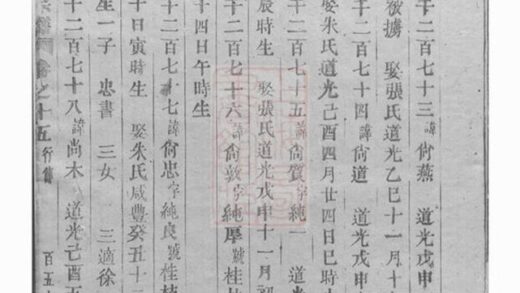 千二百七十三諱尙燕　道光戊申
被擄　娶張氏道光乙巳十一月十
千二百七十四諱尙道　道光戊申
娶朱氏道光己酉四月廿四日巳時
千二百七十五諱尙賓字純一　道光
辰時生　娶張氏道光戊申十一月初
千二百七十六諱尙敦字純厚號桂
十四日午時生
千二百七十七諱尙忠字純良號桂枝
十日寅時生　娶朱氏咸豐癸丑十二
生一子　忠書　三女　三適徐
千二百七十八諱尙木　道光己酉五
卷之十五行傳　百五十